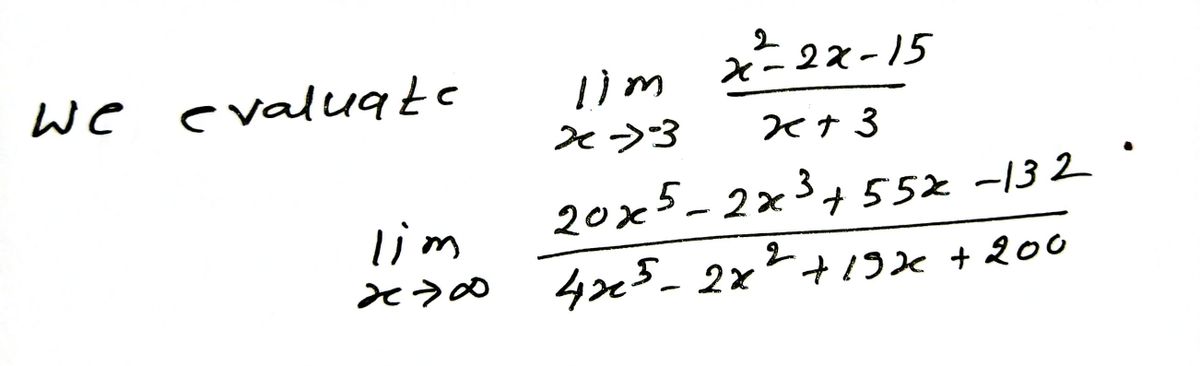 We evaluate lim x→-3 (x²-2x-15)/(x+3) .
lim x→∞ (20x⁵-2x³+55x-132)/(4x⁵-2x²+19x+200)